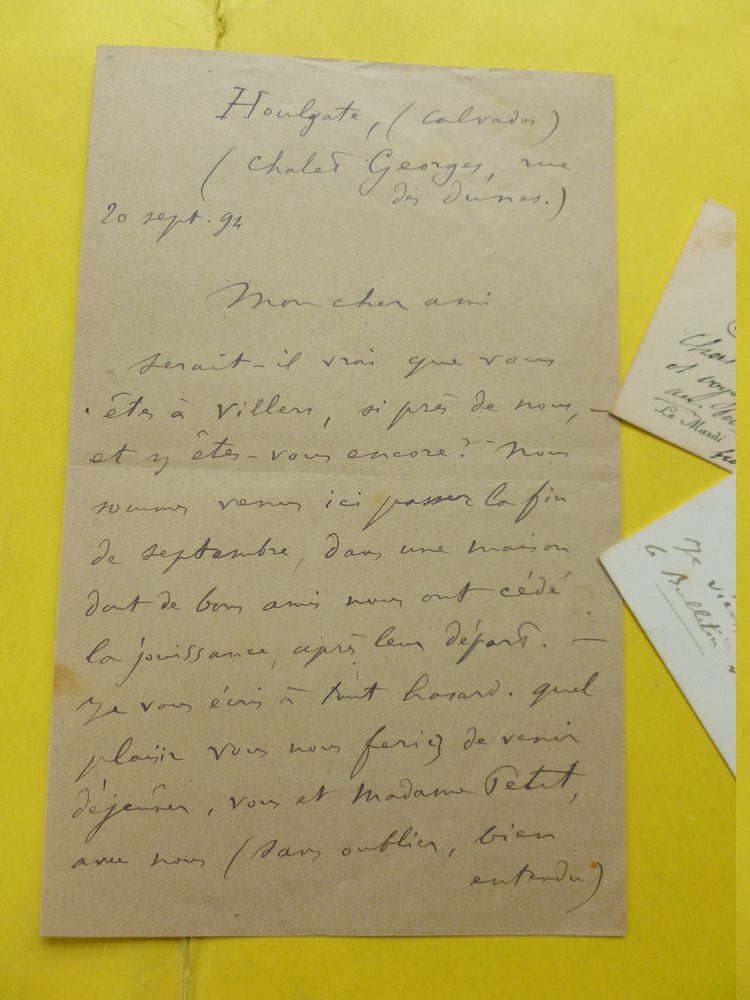 Houlgate, (Calvados)
(Chalet Georges, rue
des Dunes.)
20 sept. 94
Mon cher ami
Serait-il vrai que vous
êtes à Villers, si près de nous, —
et y êtes-vous encore? Nous
sommes venus ici passer la fin
de septembre, dans une maison
dont de bons amis nous ont cédé
la jouissance, après leur départ. —
Je vous écris à tout hasard. quel
plaisir vous nous feriez de venir
déjeûner, vous et Madame Petit,
avec nous (sans oublier, bien
entendu)
au
Le Mardi
Je vien
le Bulletin